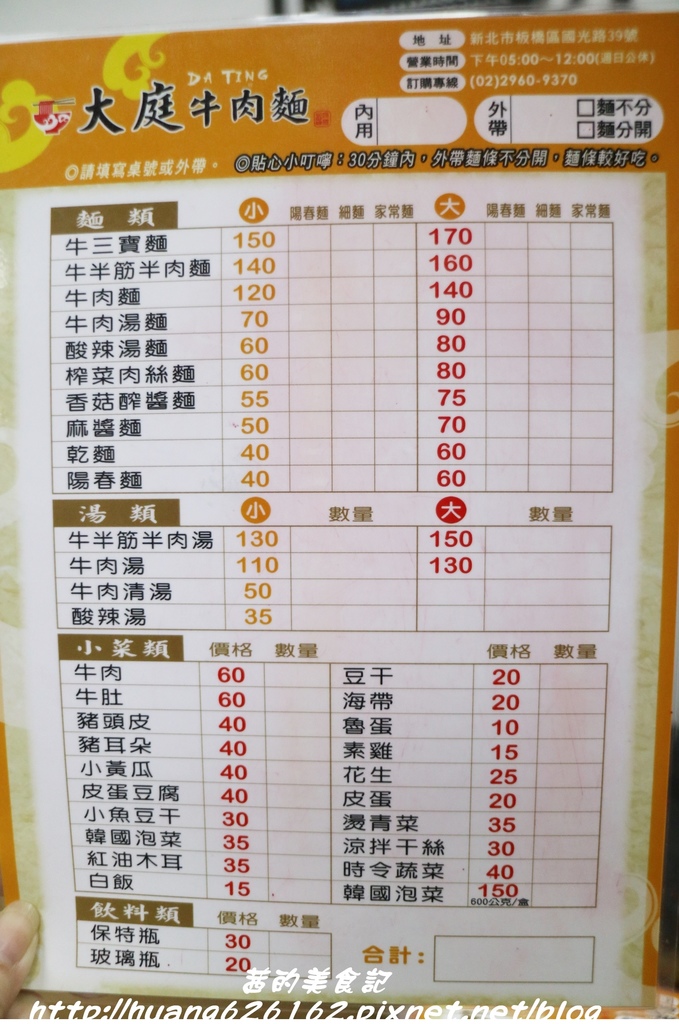 地址 新北市板橋區國光路39號
營業時間 下午05:00~12:00(週日公休)
訂購專線 (02)2960-9370
DA TING
大庭牛肉麵
內用 外帶 □麵不分
□麵分開
◎請填寫桌號或外帶。 ◎貼心小叮嚀：30分鐘內，外帶麵條不分開，麵條較好吃。
麵類 小 陽春麵 細麵 家常麵 大 陽春麵 細麵 家常麵
牛三寶麵 150 170
牛半筋半肉麵 140 160
牛肉麵 120 140
牛肉湯麵 70 90
酸辣湯麵 60 80
榨菜肉絲麵 60 80
香菇酢醬麵 55 75
麻醬麵 50 70
乾麵 40 60
陽春麵 40 60
湯類 小 數量 大 數量
牛半筋半肉湯 130 150
牛肉湯 110 130
牛肉清湯 50
酸辣湯 35
小菜類 價格 數量 價格 數量
牛肉 60 豆干 20
牛肚 60 海帶 20
豬頭皮 40 魯蛋 10
豬耳朵 40 素雞 15
小黃瓜 40 花生 25
皮蛋豆腐 40 皮蛋 20
小魚豆干 30 燙青菜 35
韓國泡菜 35 涼拌干絲 30
紅油木耳 35 時令蔬菜 40
白飯 15 韓國泡菜 150
600公克/盒
飲料類 價格 數量
保特瓶 30
玻璃瓶 20
合計：
茜的美食記
http://huang626162.pixnet.net/blog